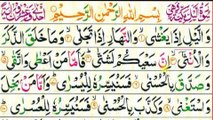 بِسْمِ اللّٰهِ الرَّحْمٰنِ الرَّحِيْمِ
وَالَّيْلِ اِذَا يَغْشٰى ۙ وَالنَّهَارِ اِذَا تَجَلّٰى ۙ وَمَا خَلَقَ الذَّكَرَ
وَالْاُنْثٰٓى ۙ اِنَّ سَعْيَكُمْ لَشَتّٰى ؕ فَاَمَّا مَنْ اَعْطٰى وَاتَّقٰى ۙ
وَصَدَّقَ بِالْحُسْنٰى ۙ فَسَنُيَسِّرُهٗ لِلْيُسْرٰى ؕ وَاَمَّا مَنْۢ بَخِلَ
وَاسْتَغْنٰى ۙ وَكَذَّبَ بِالْحُسْنٰى ۙ فَسَنُيَسِّرُهٗ